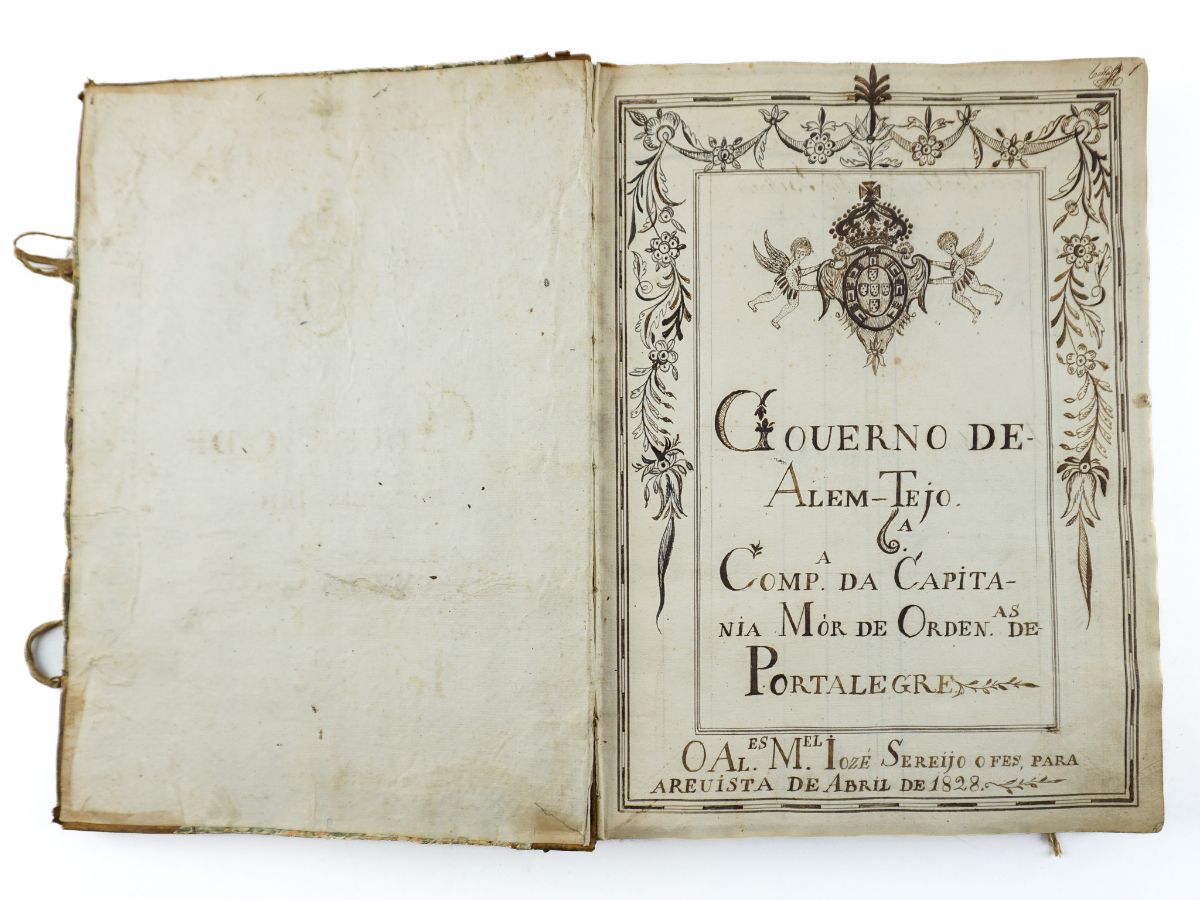 1
GOUERNO DE-
ALEM-TEJO.
6.ª
COMP.ª DA CAPITA-
NIA MÓR DE ORDEN.AS DE-
PORTALEGRE
O AL.ES M.EL IOZÉ SEREIJO O FES, PARA
AREUISTA DE ABRIL DE 1828.